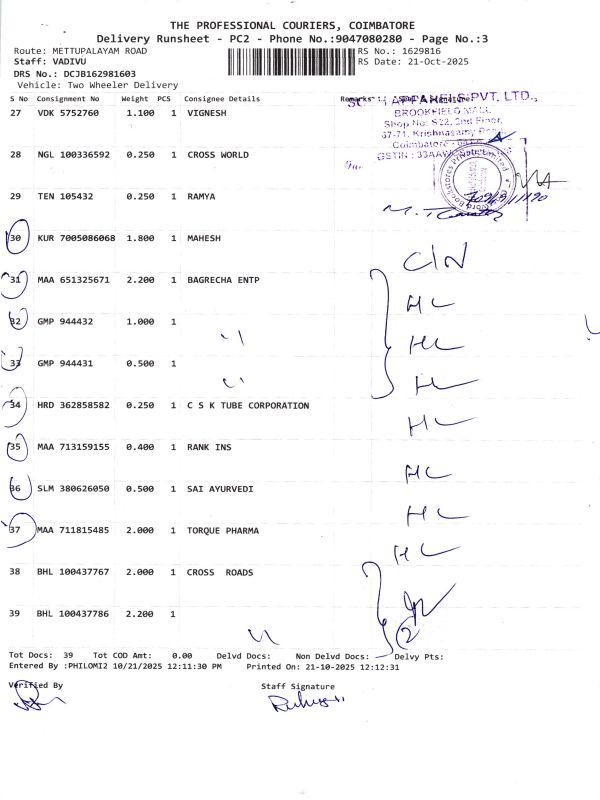 THE PROFESSIONAL COURIERS, COIMBATORE
Delivery Runsheet - PC2 - Phone No.:9047080280 - Page No.:3
Route: METTUPALAYAM ROAD RS No.: 1629816
Staff: VADIVU RS Date: 21-Oct-2025
DRS No.: DCJB162981603
Vehicle: Two Wheeler Delivery
S No Consignment No Weight PCS Consignee Details Remarks
27 VDK 5752760 1.100 1 VIGNESH
APPARELS PVT. LTD.,
BROOKFIELD MALL
Shop No: S22, 2nd Floor,
67-71, Krishnasamy
Coimbatore
GSTIN : 33AAW
28 NGL 100336592 0.250 1 CROSS WORLD
29 TEN 105432 0.250 1 RAMYA
30 KUR 7005086068 1.800 1 MAHESH
C/N
31 MAA 651325671 2.200 1 BAGRECHA ENTP
HC
32 GMP 944432 1.000 1 〃
HC
33 GMP 944431 0.500 1 〃
HC
34 HRD 362858582 0.250 1 C S K TUBE CORPORATION
HC
35 MAA 713159155 0.400 1 RANK INS
HC
36 SLM 380626050 0.500 1 SAI AYURVEDI
HC
37 MAA 711815485 2.000 1 TORQUE PHARMA
HC
38 BHL 100437767 2.000 1 CROSS ROADS
39 BHL 100437786 2.200 1 〃
2
Tot Docs: 39 Tot COD Amt: 0.00 Delvd Docs: Non Delvd Docs: Delvy Pts:
Entered By :PHILOMI2 10/21/2025 12:11:30 PM Printed On: 21-10-2025 12:12:31
Verified By Staff Signature